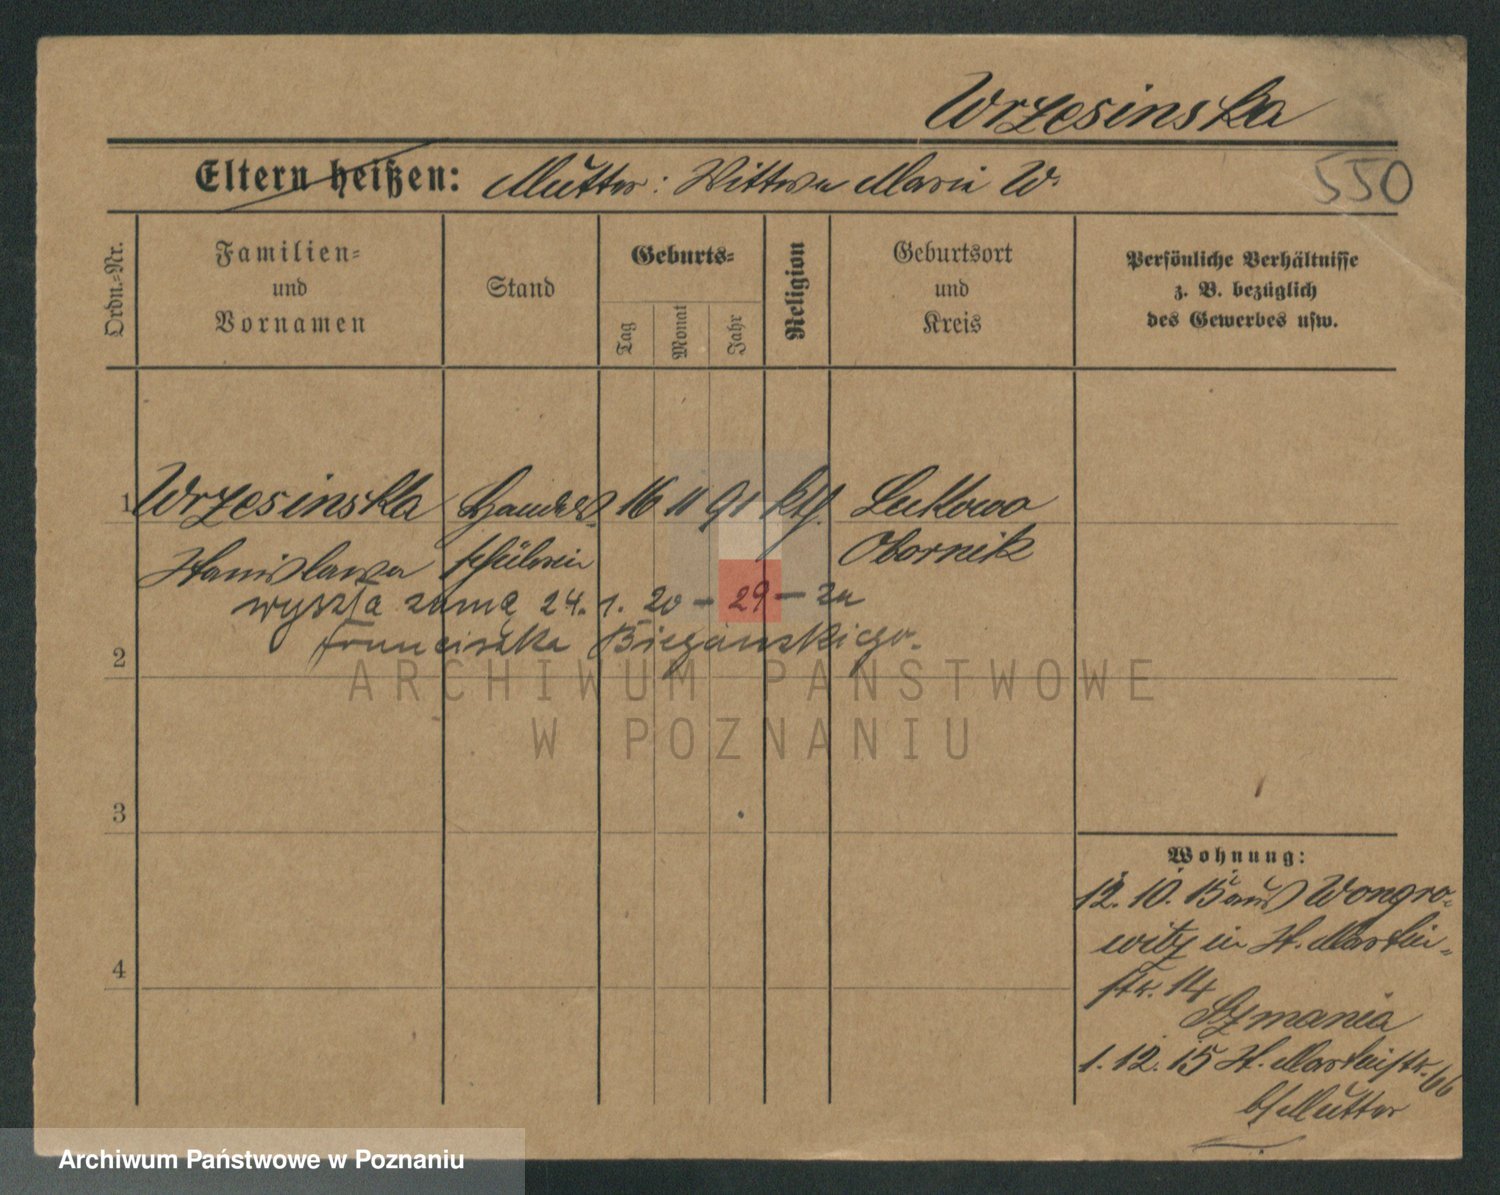 Wrzesinska
Eltern heißen: Mutter: Wittwe Marie W.
550
Ordn.=Nr.
Familien=
und
Vornamen
Stand
Geburts=
Tag
Monat
Jahr
Religion
Geburtsort
und
Kreis
Persönliche Verhältnisse
z. B. bezüglich
des Gewerbes usw.
1 Wrzesinska Handels= 16 11 91 kth. Lukowo
Stanislawa schülerin Obornik
wyszła zamą 24. 1. 20 – 29 – za
Franciszka Bieganskiego.
2
ARCHIWUM PAŃSTWOWE
W POZNANIU
3
Wohnung:
12. 10. 15 aus Wongro=
witz in St. Martin=
str. 14
Szmania
4
1. 12. 15 St. Martinstr. 66
b/ Mutter
Archiwum Państwowe w Poznaniu